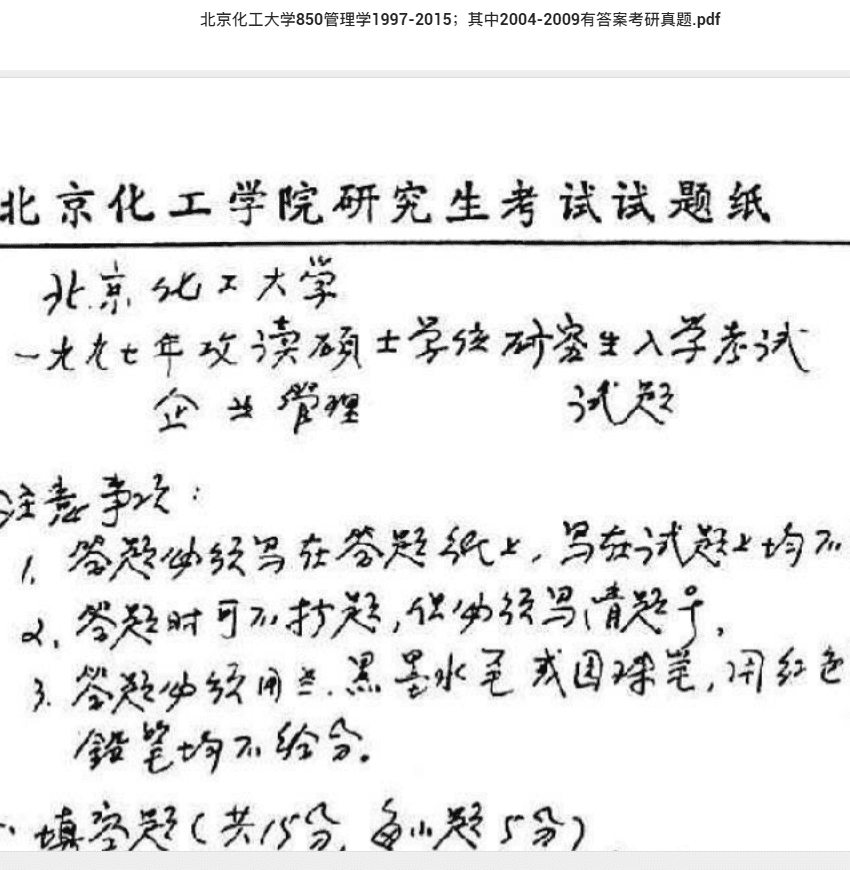 北京化工大学850管理学1997-2015；其中2004-2009有答案考研真题.pdf
北京化工学院研究生考试试题纸
北京化工大学
一九九七年攻读硕士学位研究生入学考试
企业管理 试题
注意事项：
1. 答题必须写在答题纸上，写在试题上均不
2. 答题时可不抄题，但必须写清题号，
3. 答题必须用兰.黑墨水笔或园珠笔，用红色
鉛笔均不给分。
填空题（共15分，每小题5分）